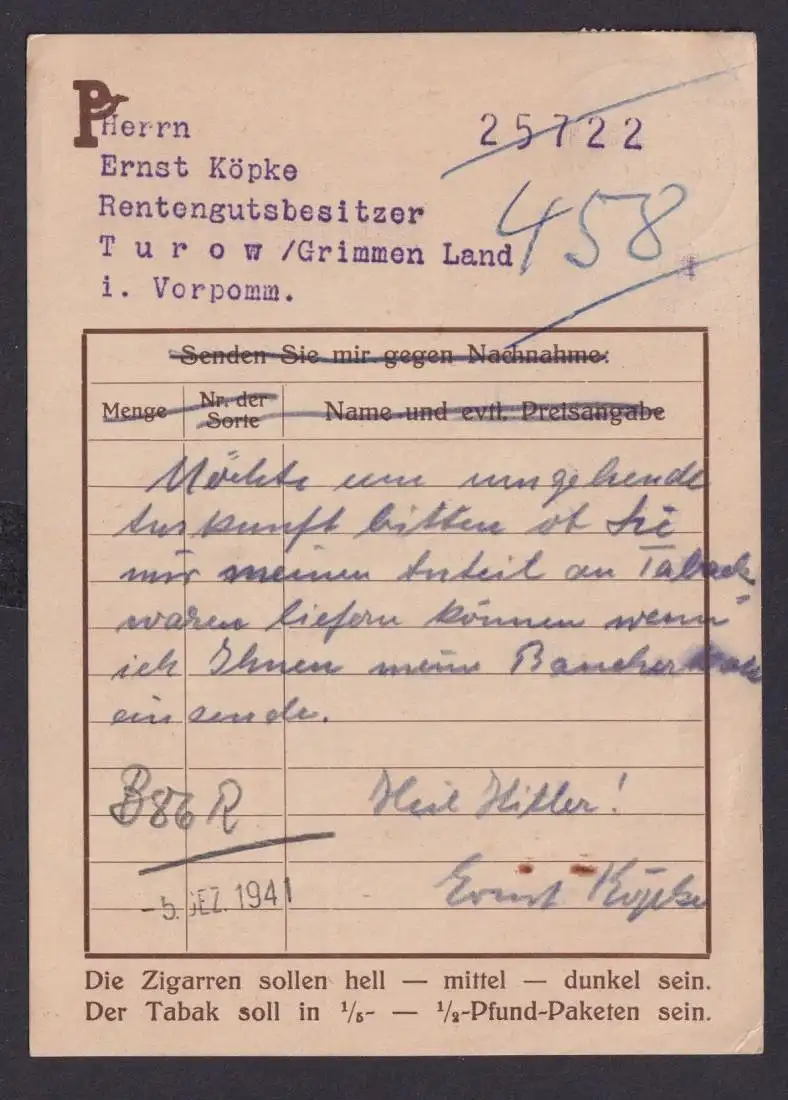 P
Herrn
25722
Ernst Köpke
Rentengutsbesitzer
458
Turow/Grimmen Land
i. Vorpomm.
Senden Sie mir gegen Nachnahme:
Menge Nr. der Sorte Name und evtl. Preisangabe
Möchte um umgehende
Auskunft bitten ob Sie
mir meinen Anteil an Taback
waren liefern können wenn
ich Ihnen meine
einsende.
B86 R
Heil Hitler!
Ernst Köpke
-5. DEZ. 1941
Die Zigarren sollen hell — mittel — dunkel sein.
Der Tabak soll in ¹/₅- — ¹/₂-Pfund-Paketen sein.